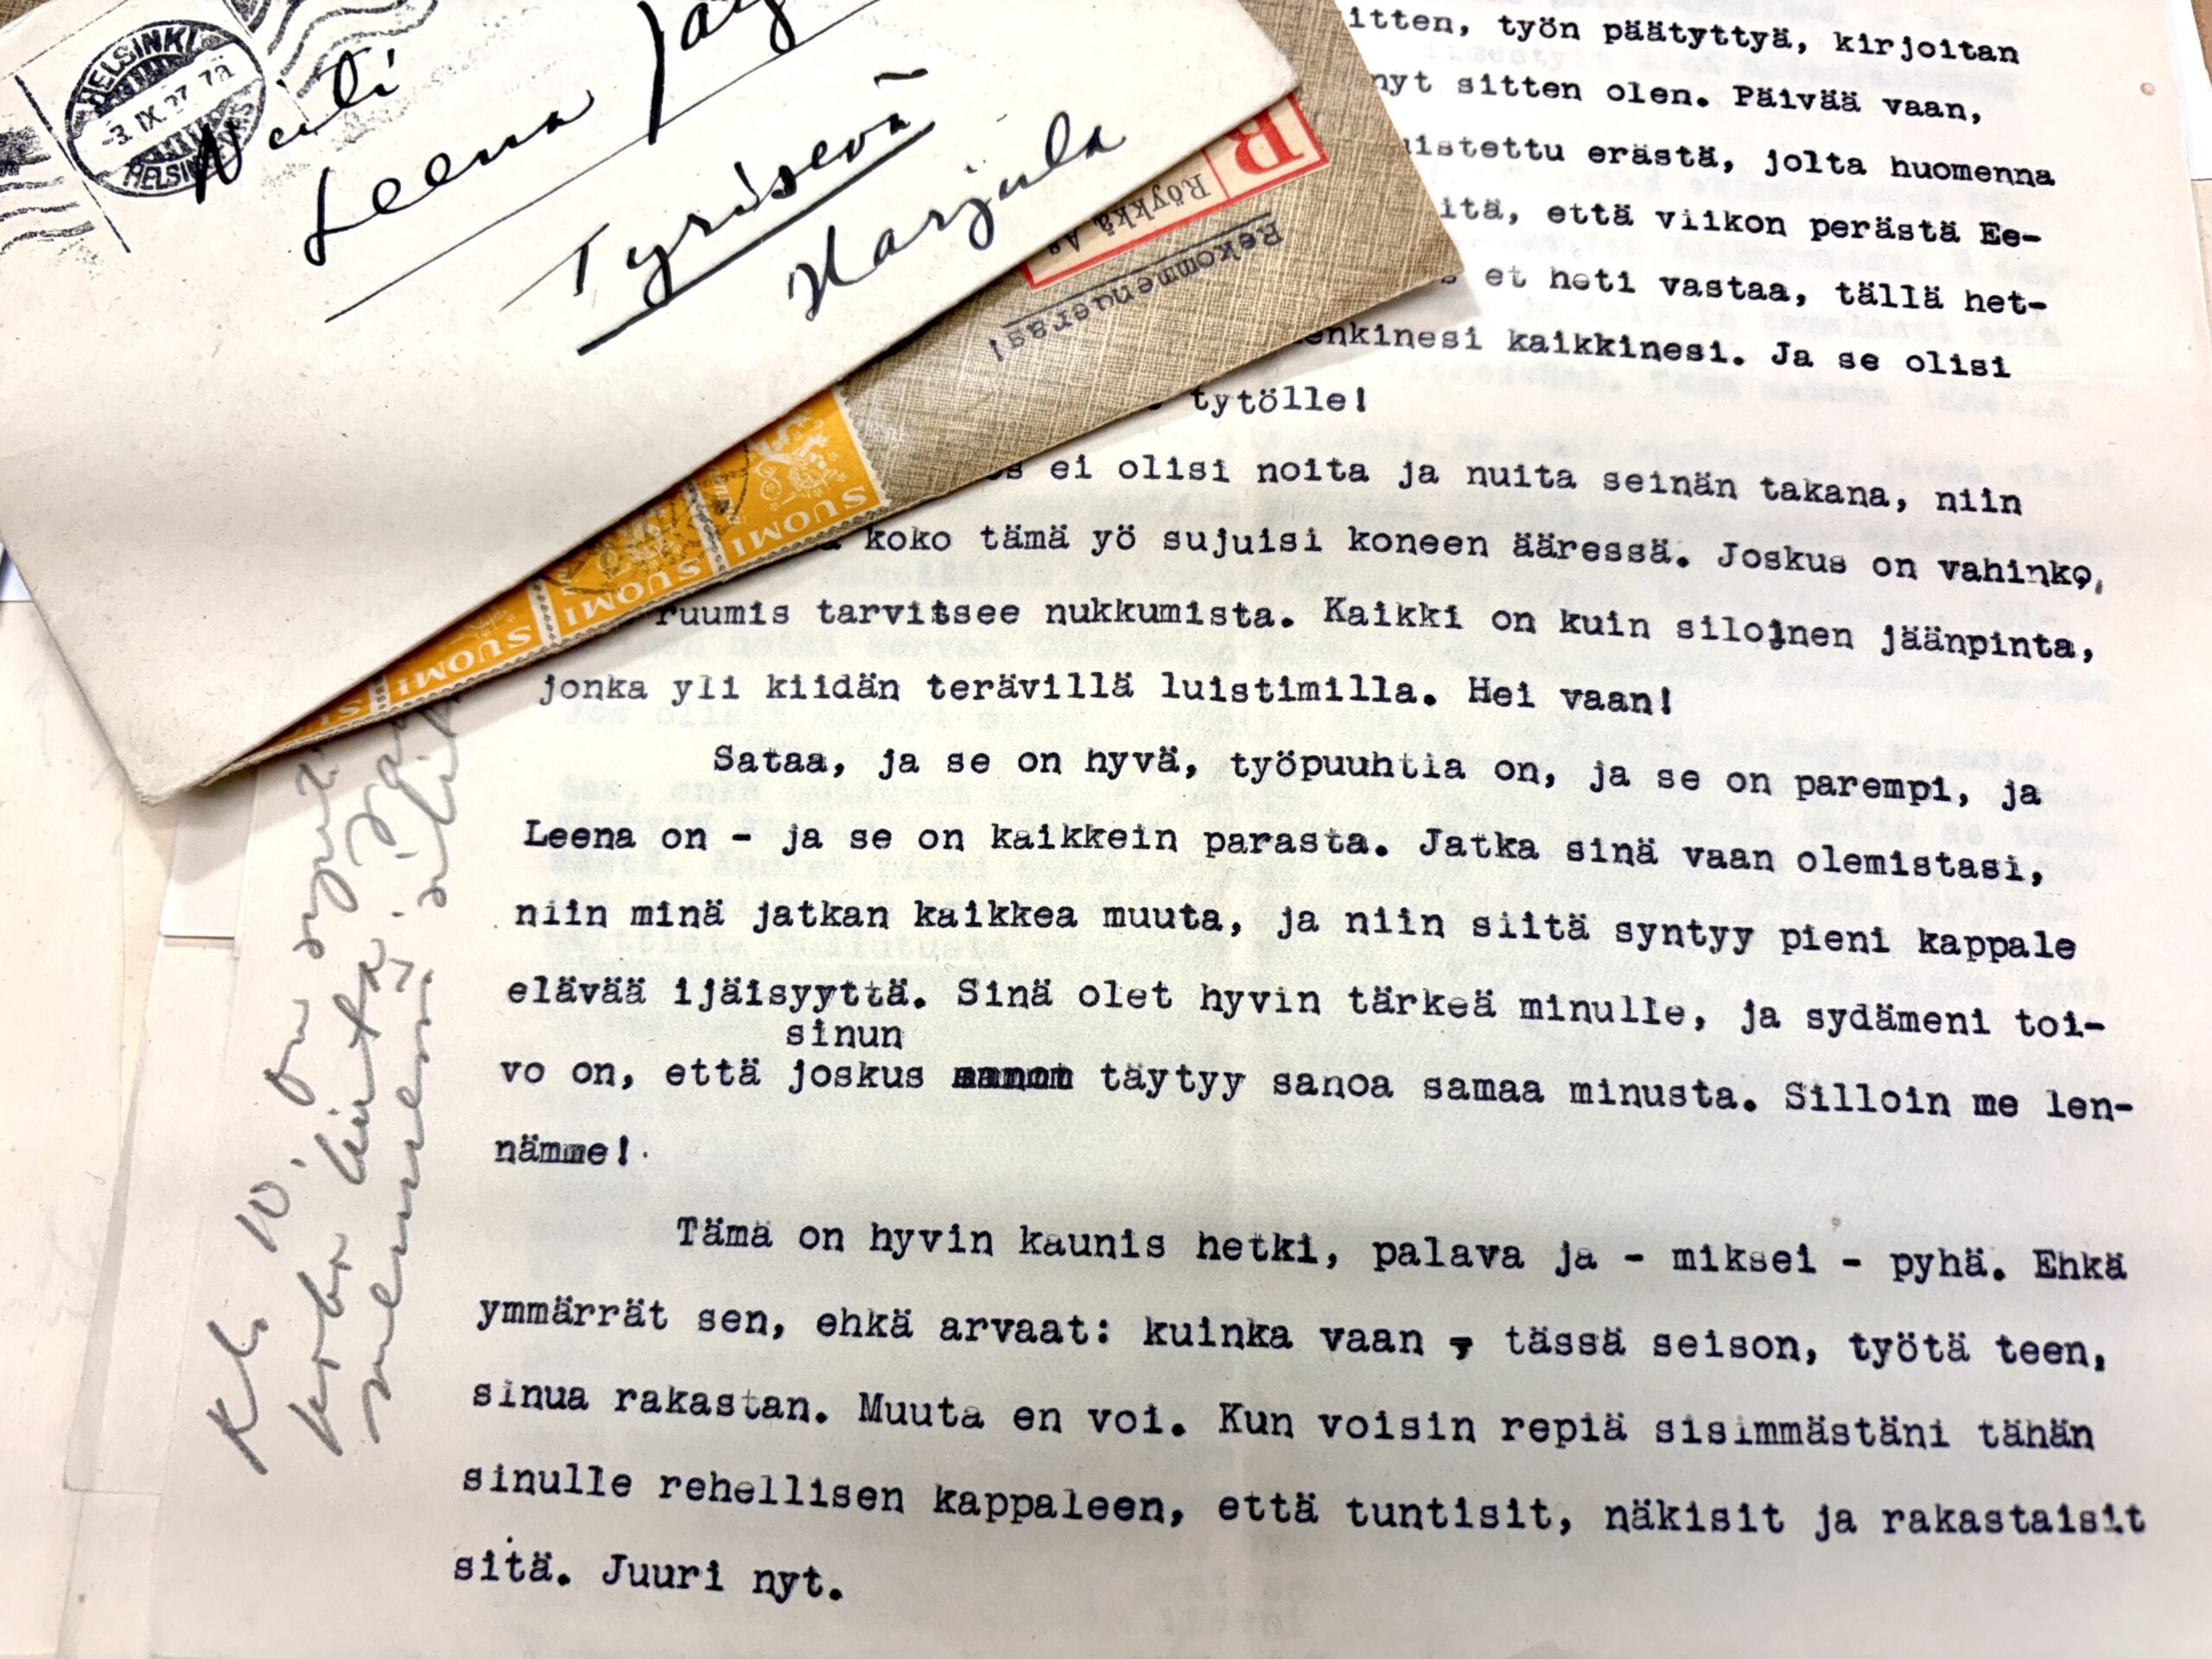 HELSINKI
-3. IX. 37. 7a
HELSINKI
Neiti
Leena
Tyrisevä
Harjula
R
Röykkä, As
Rekommenderas!
SUOMI
SUOMI
SUOMI
SUOMI
työn päätyttyä, kirjoitan
nyt sitten olen. Päivää vaan,
erästä, jolta huomenna
että viikon perästä Ee-
et heti vastaa, tällä het-
kaikkinesi. Ja se olisi
tytölle!
ei olisi noita ja nuita seinän takana, niin
koko tämä yö sujuisi koneen ääressä. Joskus on vahinko,
ruumis tarvitsee nukkumista. Kaikki on kuin siloinen jäänpinta,
jonka yli kiidän terävillä luistimilla. Hei vaan!
Sataa, ja se on hyvä, työpuuhtia on, ja se on parempi, ja
Leena on - ja se on kaikkein parasta. Jatka sinä vaan olemistasi,
niin minä jatkan kaikkea muuta, ja niin siitä syntyy pieni kappale
elävää ijäisyyttä. Sinä olet hyvin tärkeä minulle, ja sydämeni toi-
sinun
vo on, että joskus täytyy sanoa samaa minusta. Silloin me len-
nämme!
Tämä on hyvin kaunis hetki, palava ja - miksei - pyhä. Ehkä
ymmärrät sen, ehkä arvaat: kuinka vaan, tässä seison, työtä teen,
sinua rakastan. Muuta en voi. Kun voisin repiä sisimmästäni tähän
sinulle rehellisen kappaleen, että tuntisit, näkisit ja rakastaisit
sitä. Juuri nyt.
Klo 10. on